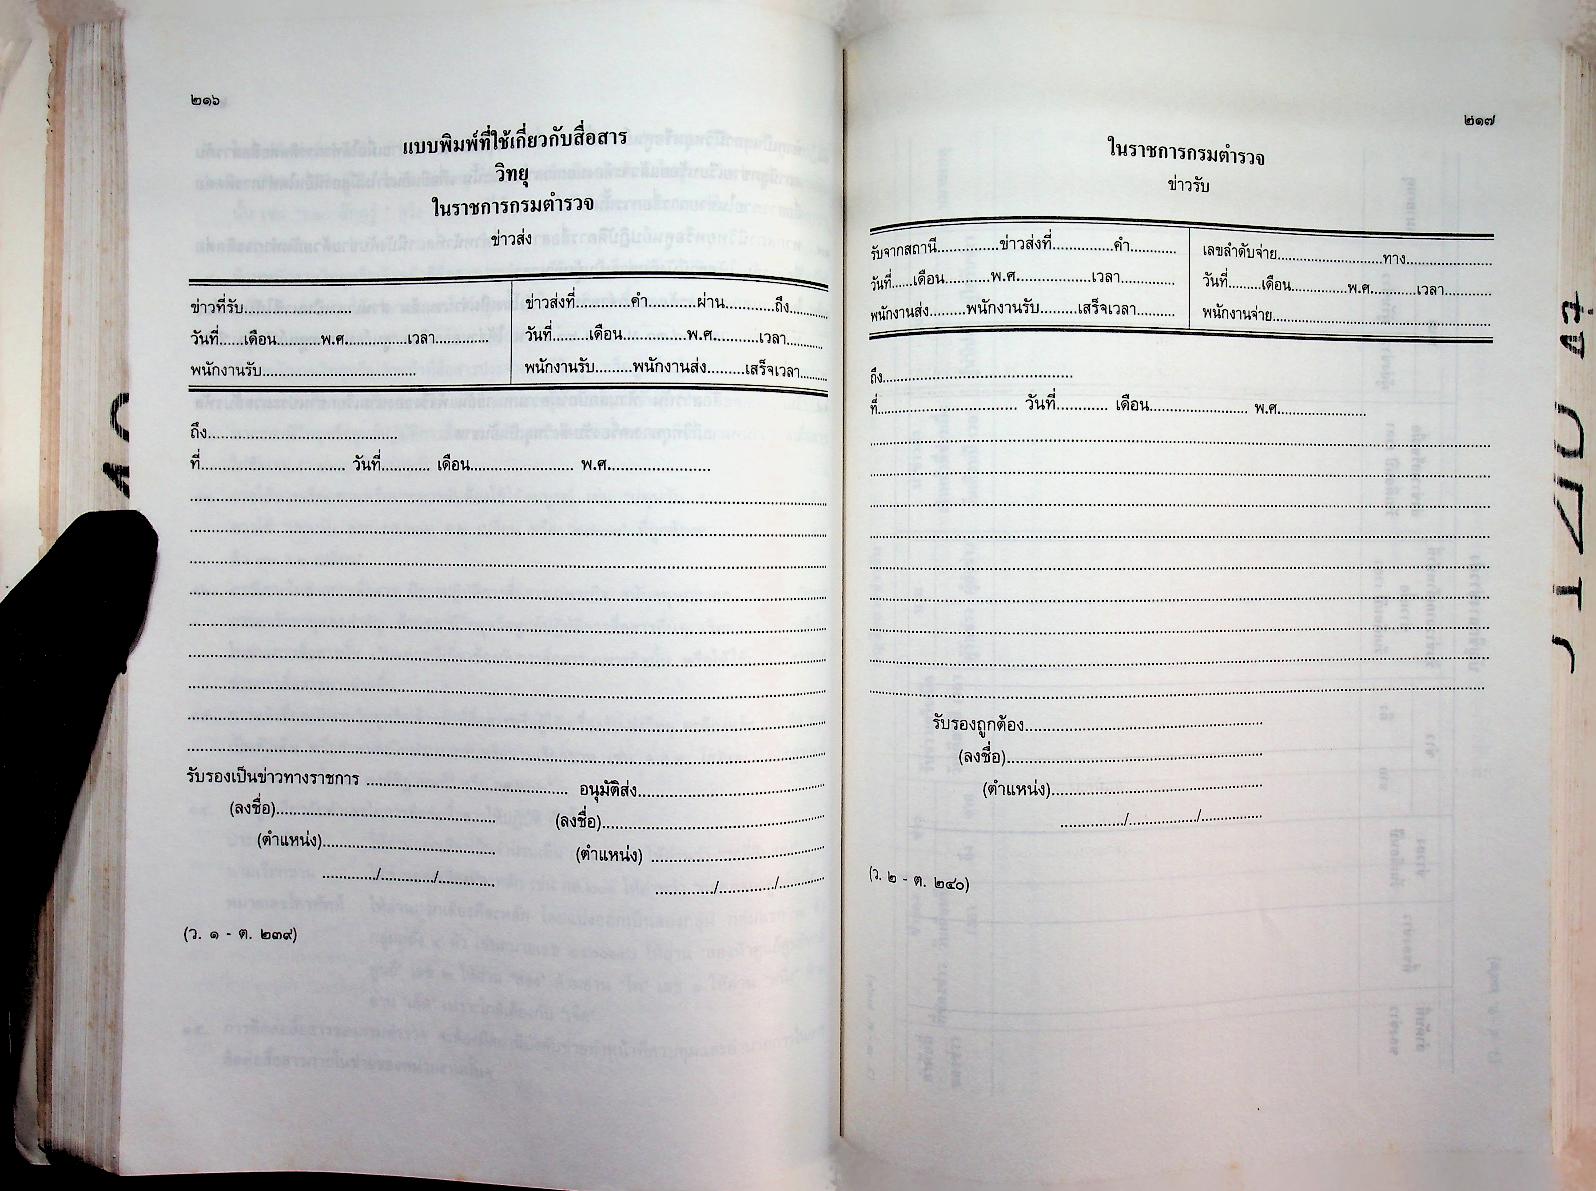 ๒๑๖
แบบพิมพ์ที่ใช้เกี่ยวกับสื่อสาร
วิทยุ
ในราชการกรมตำรวจ
ข่าวส่ง
ข่าวที่รับ.................... ข่าวส่งที่..........คำ.........ผ่าน..........ถึง.........
วันที่.....เดือน........พ.ศ............เวลา............ วันที่.......เดือน............พ.ศ.........เวลา........
พนักงานรับ............................ พนักงานรับ.......พนักงานส่ง.......เสร็จเวลา......
ถึง....................................
ที่........................... วันที่.......... เดือน.................... พ.ศ....................
รับรองเป็นข่าวทางราชการ ...................................... อนุมัติส่ง...................................
(ลงชื่อ)......................................... (ลงชื่อ).........................................
(ตำแหน่ง)................................. (ตำแหน่ง) .................................
.........../.........../........... .........../.........../...........
(ว. ๑ - ต. ๒๓๙)
๒๑๗
ในราชการกรมตำรวจ
ข่าวรับ
รับจากสถานี............ข่าวส่งที่............คำ......... เลขลำดับจ่าย....................ทาง................
วันที่.....เดือน.........พ.ศ...............เวลา........... วันที่.......เดือน...........พ.ศ.........เวลา.........
พนักงานส่ง........พนักงานรับ........เสร็จเวลา........ พนักงานจ่าย..........................................
ถึง....................................
ที่........................... วันที่.......... เดือน.................... พ.ศ.................
รับรองถูกต้อง.............................................
(ลงชื่อ)................................................
(ตำแหน่ง)........................................
............./............../.............
(ว. ๒ - ต. ๒๔๐)